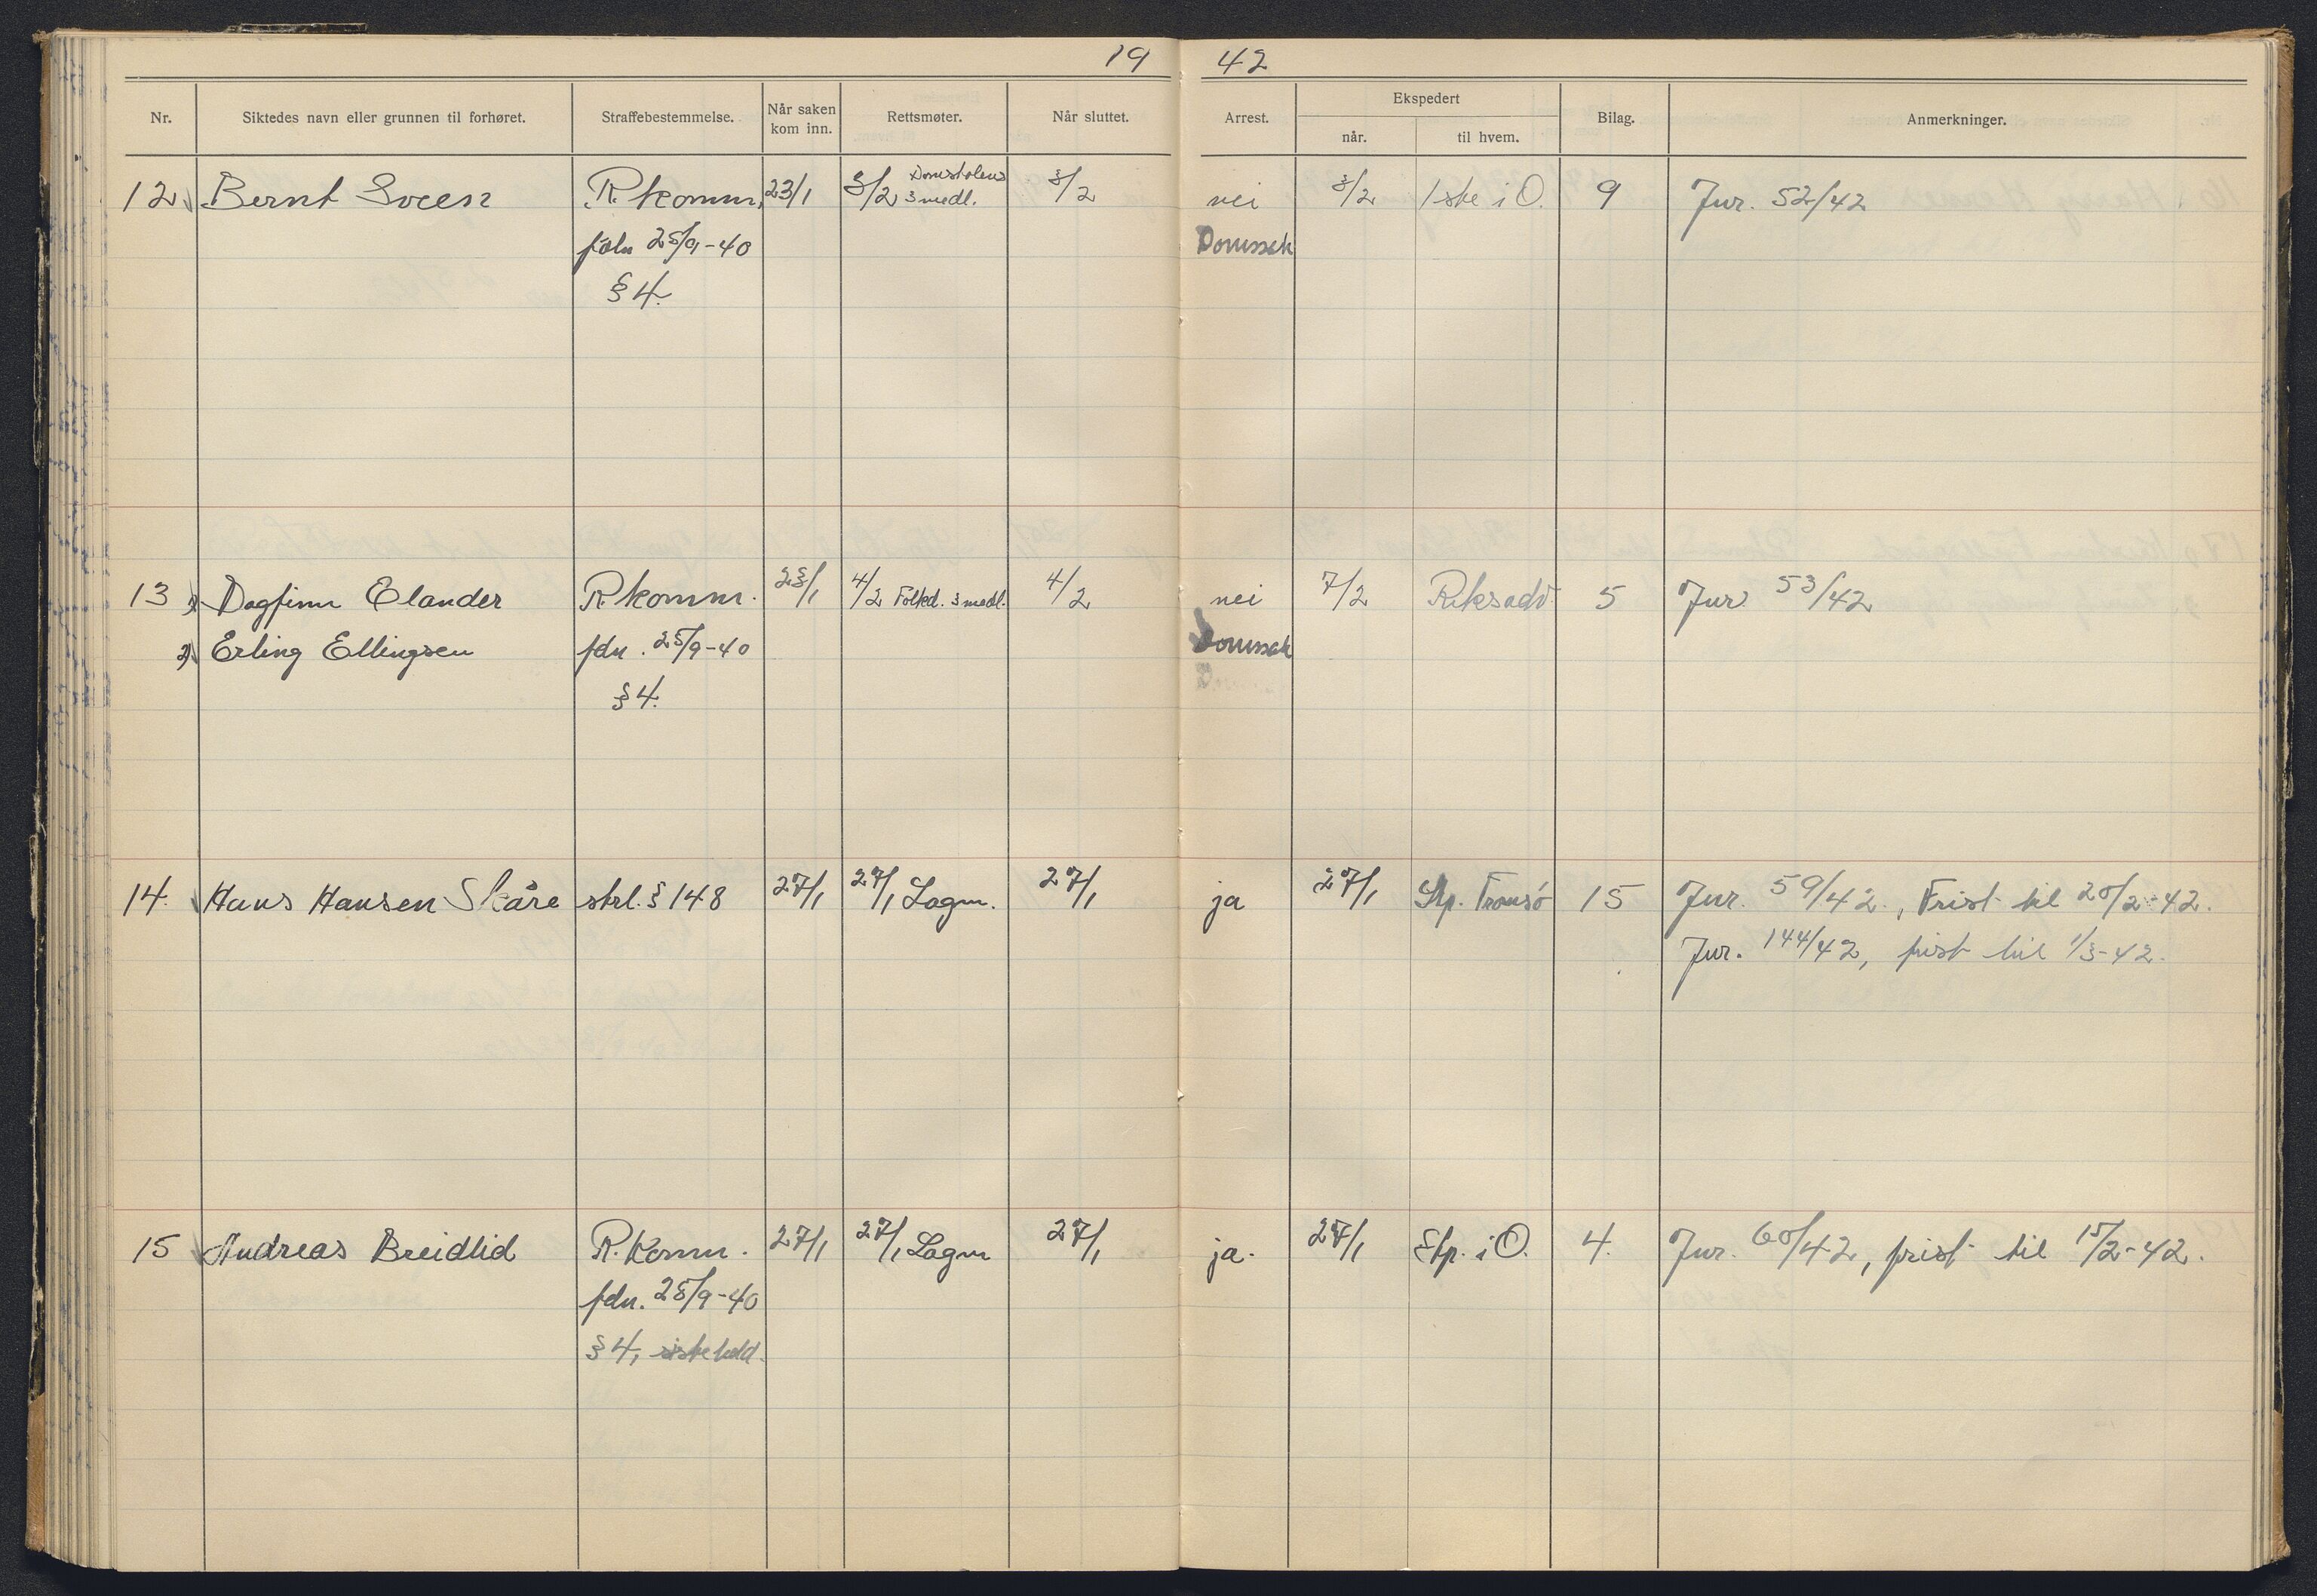 19 42
Nr. Siktedes navn eller grunnen til forhøret. Straffebestemmelse. Når saken kom inn. Rettsmøter. Når sluttet. Arrest. Ekspedert når. til hvem. Bilag. Anmerkninger.
12. Bernt Sveen R. komm. 23/1 3/2 Domstolens 3 medl. 3/2 nei 3/2 1ste i O. 9 Jur. 52/42
foln 25/9-40 Domssak
§ 4.
13 1) Dagfinn Elander R. komm. 23/1 4/2 Folkd. 3 medl. 4/2 nei 7/2 Riksadv. 5 Jur. 53/42
2) Erling Ellingsen fdn. 25/9-40 Domssak
§ 4.
14. Hans Hansen Skåre strl. § 148 27/1 27/1 Lagm. 27/1 ja 27/1 Stp. Tromsö 15 Jur. 59/42., Frist til 20/2-42.
Jur. 144/42, frist til 1/3-42.
15 Andreas Breidlid R. Komm. 27/1 27/1 Lagm 27/1 ja. 27/1 Stp. i O. 4. Jur. 60/42, frist til 15/2-42.
fdn. 25/9-40
§ 4, siste ledd.